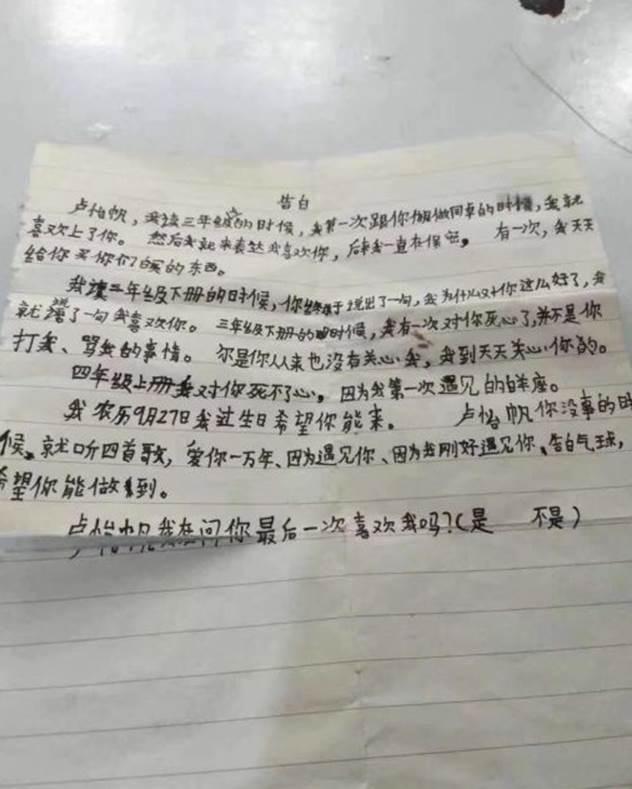 告白
卢怡帆，我读三年级的时候，我第一次跟你做同桌的时候，我就
喜欢上了你。然后我就来表达我喜欢你，后来我一直在保密，有一次，我天天
给你买你们的东西。
我读三年级下册的时候，你终于说出了一句，我为什么对你这么好了，我
就说了一句我喜欢你。三年级下册的时候，我有一次对你死心了，并不是你
打我、骂我的事情。尔是你从来也没有关心我，我到天天关心你的。
四年级上册我对你死不了心，因为我第一次遇见的座。
我农历9月27日我过生日希望你能来。卢怡帆你没事的时
候、就听四首歌，爱你一万年、因为遇见你、因为我刚好遇见你、告白气球，
希望你能做到。
卢怡帆我在问你最后一次喜欢我吗？（是 不是）